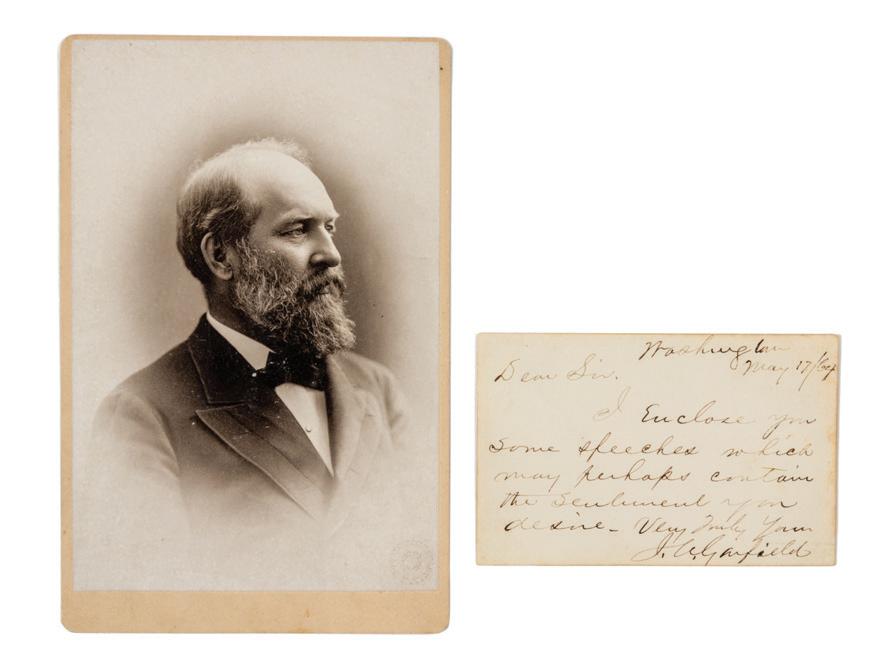 Washington
May 17/64
Dear Sir.
I Enclose you
some speeches which
may perhaps contain
the sentiment you
desire - Very Truly Yours
J. A. Garfield